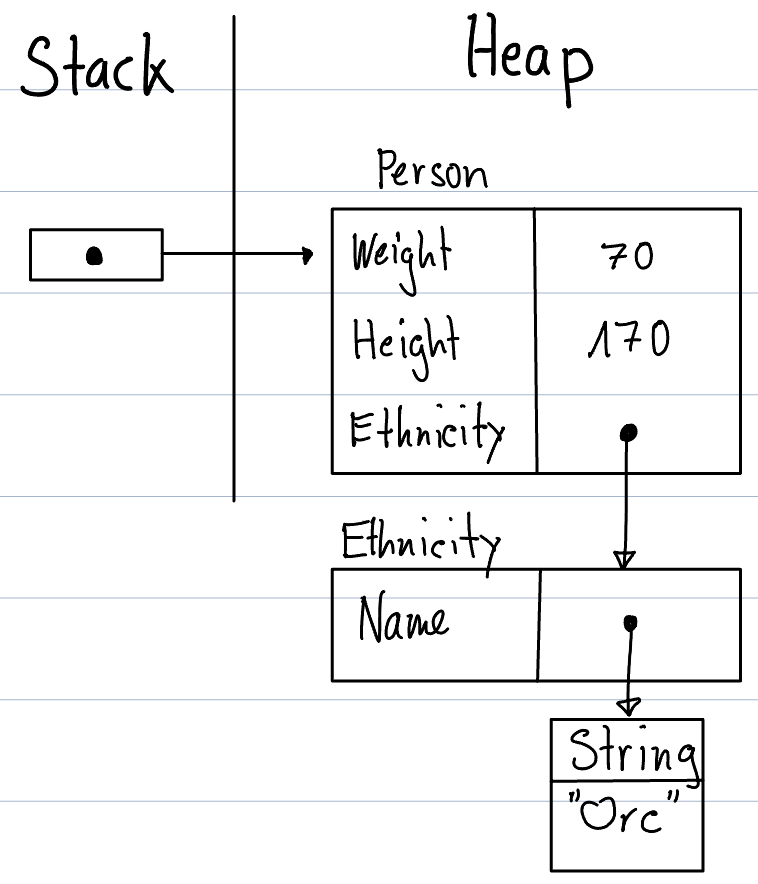 Stack
Heap
Person
Weight 70
Height 170
Ethnicity
Ethnicity
Name
String
"Orc"